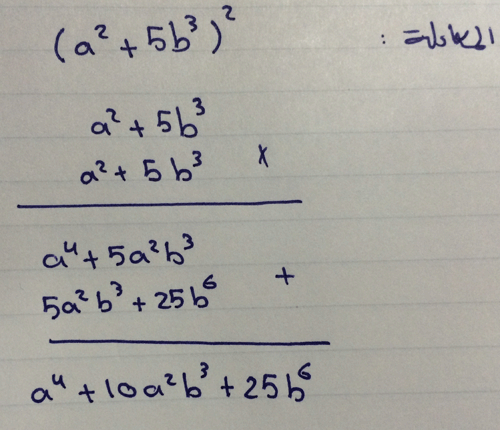 (a² + 5b³)²
a² + 5b³
a² + 5b³ x
a⁴ + 5a²b³
5a²b³ + 25b⁶ +
a⁴ + 10a²b³ + 25b⁶